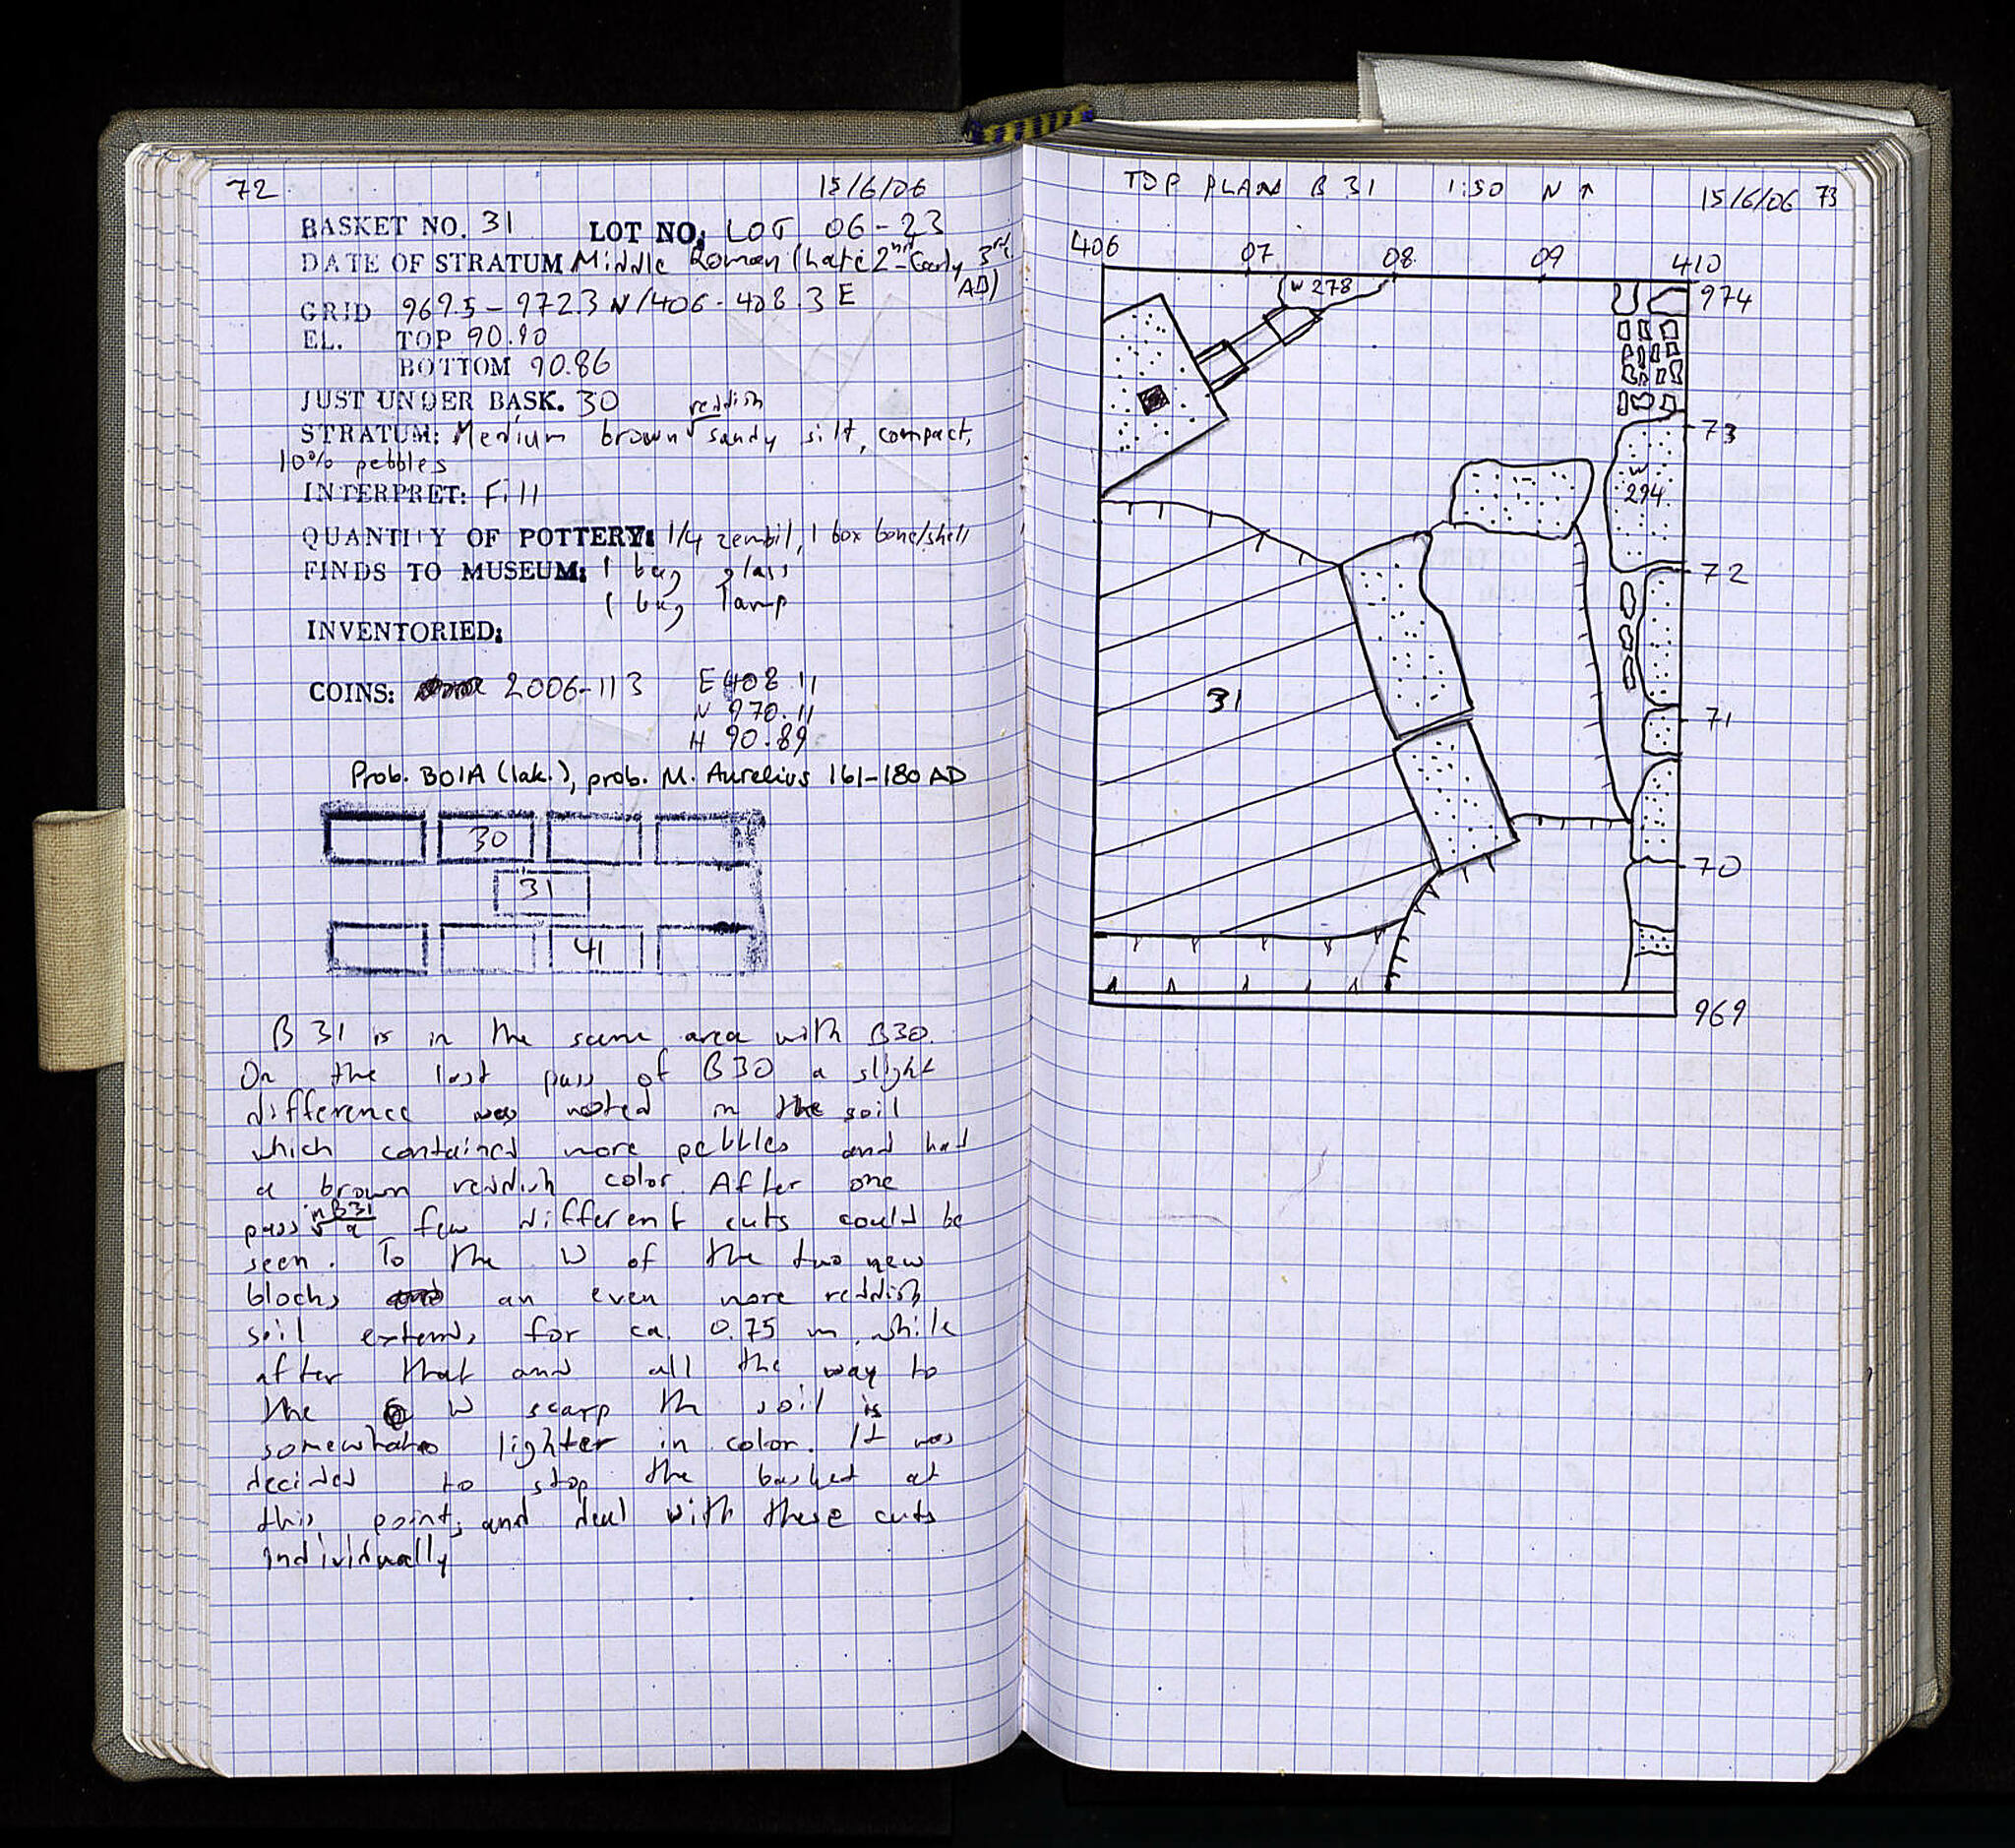 72
15/6/06
BASKET NO. 31 LOT NO. LOT 06-23
DATE OF STRATUM Middle Roman (Late 2nd-Early 3rd AD)
GRID 969.5-972.3 N/406-408.3 E
EL. TOP 90.90
BOTTOM 90.86
JUST UNDER BASK. 30
STRATUM: Medium brown reddish sandy silt, compact,
10% pebbles
INTERPRET: Fill
QUANTITY OF POTTERY: 1/4 zembil, 1 box bone/shell
FINDS TO MUSEUM: 1 bag glass
1 bag lamp
INVENTORIED:
COINS: 2006-113 E 408.11
N 970.11
H 90.89
Prob. BOIA (lak.), prob. M. Aurelius 161-180 AD
30
31
41
B 31 is in the same area with B30.
On the last pass of B30 a slight
difference was noted in the soil
which contained more pebbles and had
a brown reddish color. After one
pass in B31 a few different cuts could be
seen. To the W of the two new
blocks an even more reddish
soil extends for ca. 0.75 m while
after that and all the way to
the W scarp th soil is
somewhat lighter in color. It was
decided to stop the basket at
this point, and deal with these cuts
individually
TOP PLAN B 31 1:50 N ↑ 15/6/06 73
406 07 08 09 410
W 278
974
73
W 294
72
31
71
70
969